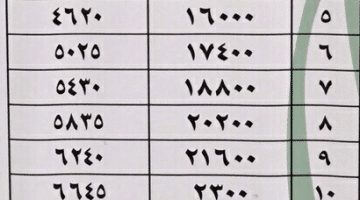 ٥ ١٦٠٠٠ ٤٦٢٠
٦ ١٧٤٠٠ ٥٠٢٥
٧ ١٨٨٠٠ ٥٤٣٠
٨ ٢٠٢٠٠ ٥٨٣٥
٩ ٢١٦٠٠ ٦٢٤٠
١٠ ٢٣٠٠ ٦٦٤٥